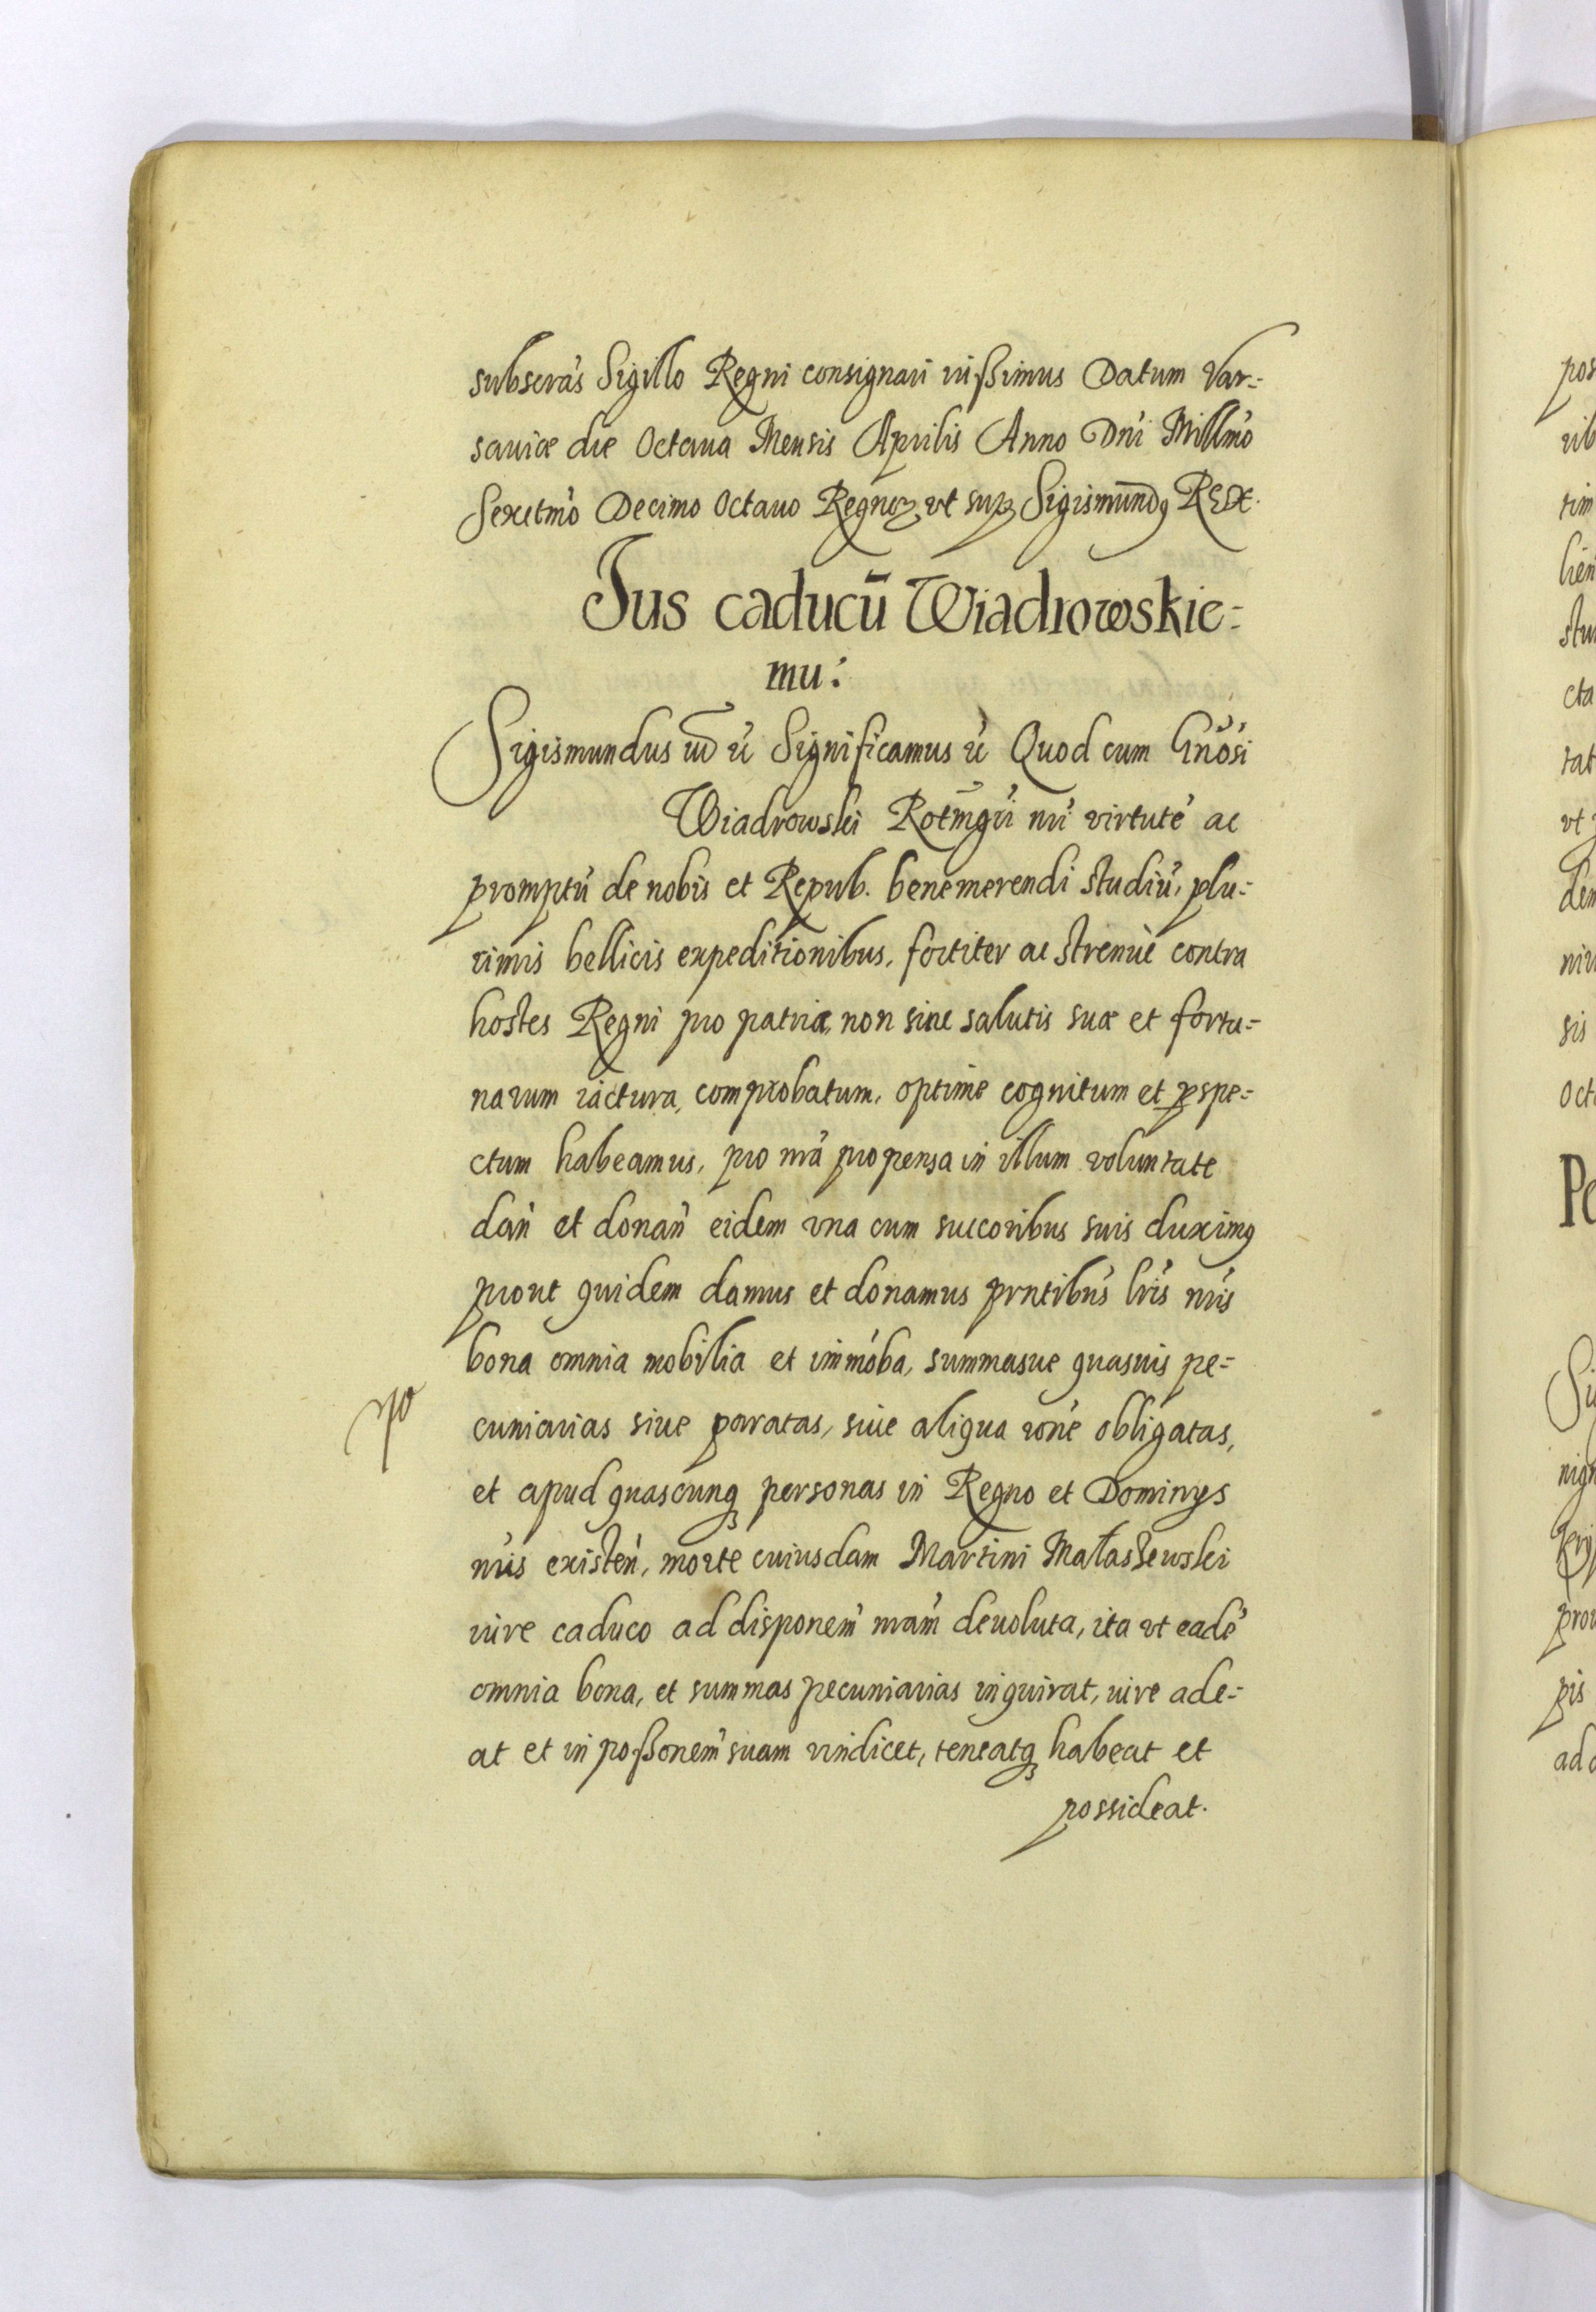 subscrás Sigillo Regni consignari iußimus Datum Var=
saviæ die Octava Mensis Aprilis Anno Dni Millmo
Sexctmo Decimo Octavo Regnoꝝ vt sup Sigismundꝯ REX.
Jus caducū Wiadrowskie=
mu:
Sigismundus Significamus Quod cum Gnosi
Wiadrowski Rotmgri nri virtute ac
promptū de nobis et Repub. benemerendi studiū, plu=
rimis bellicis expeditionibus, fortiter ac strenuè contra
hostes Regni pro patria, non sine salutis suæ et fortu=
narum iactura, comprobatum, optime cognitum et ꝑspe=
ctum habeamus, pro nra propensa in illum voluntate
dan et donan eidem vna cum succoribus suis duximꝯ
prout quidem damus et donamus prntibus lris nris
bona omnia mobilia et immoba, summasue quasuis pe=
cuniarias siue paratas, siue aliqua rone obligatas,
et apud quascunqꝫ personas in Regno et Dominys
nris existen, morte cuiusdam Martini Małaszewski
iure caduco ad disponem nram deuoluta, ita vt eadē
omnia bona, et summas pecuniarias inquirat, iure ade=
at et in poßonem suam vindicet, teneatqꝫ habeat et
possideat.